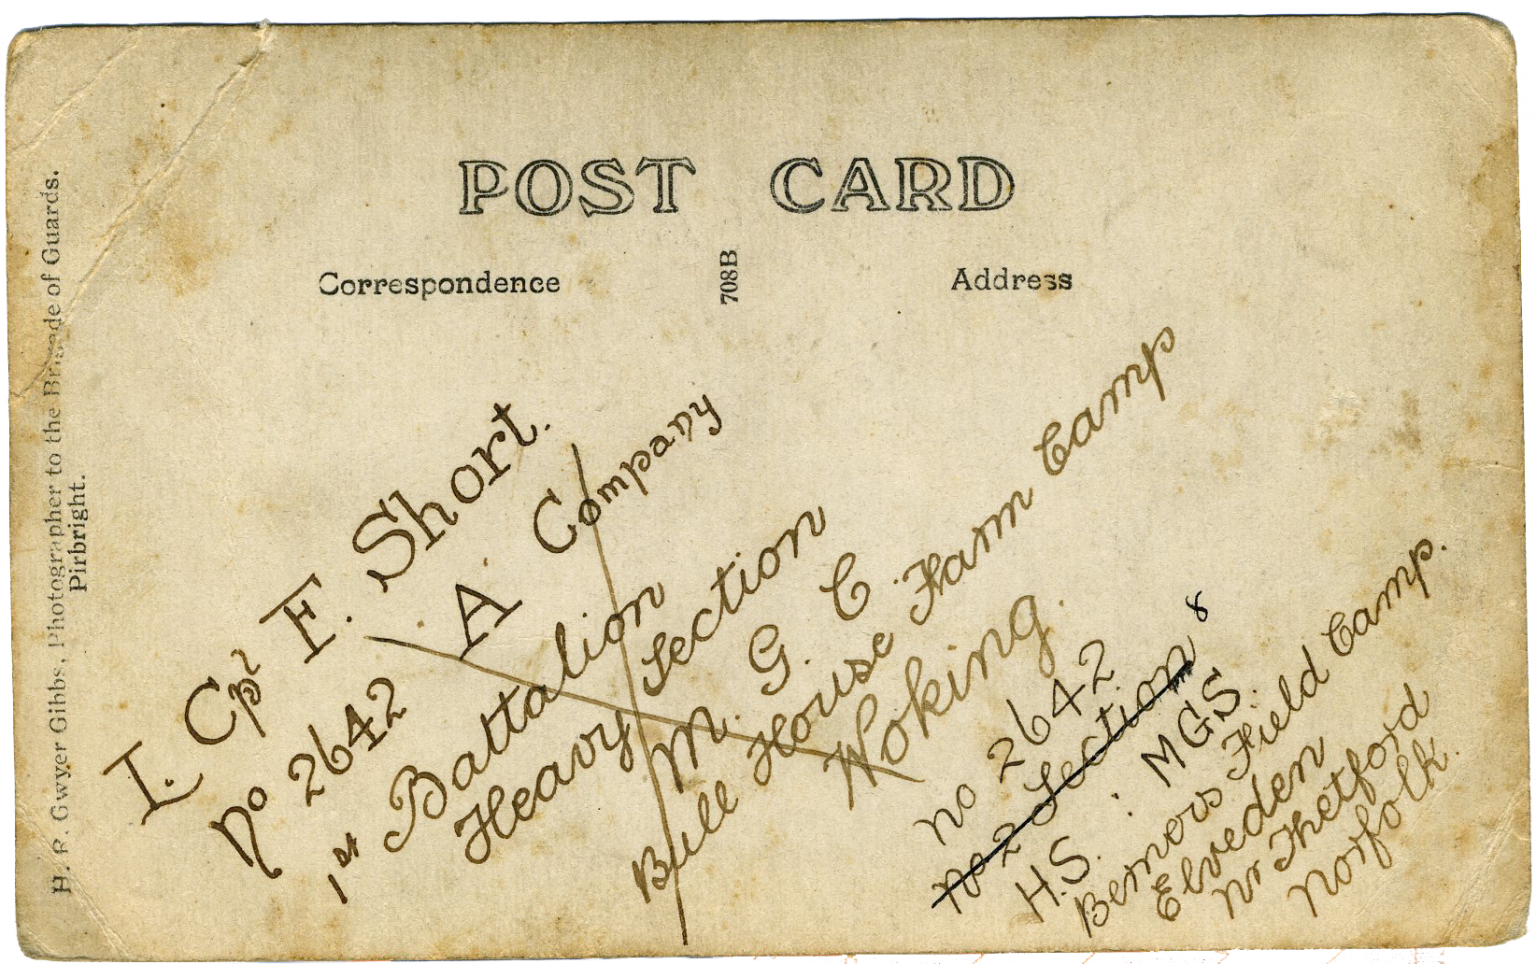 POST CARD
Correspondence
708B
Address
H. R. Gwyer Gibbs, Photographer to the Brigade of Guards.
Pirbright.
L. Cpl F. Short.
No 2642 A Company
1st Battalion
Heavy Section
M. G. C.
Bull House Farm Camp
Woking.
No 2642
No 2 Section 8
H.S. : MGS.
Berners Field Camp.
Elveden
Nr Thetford
Norfolk.